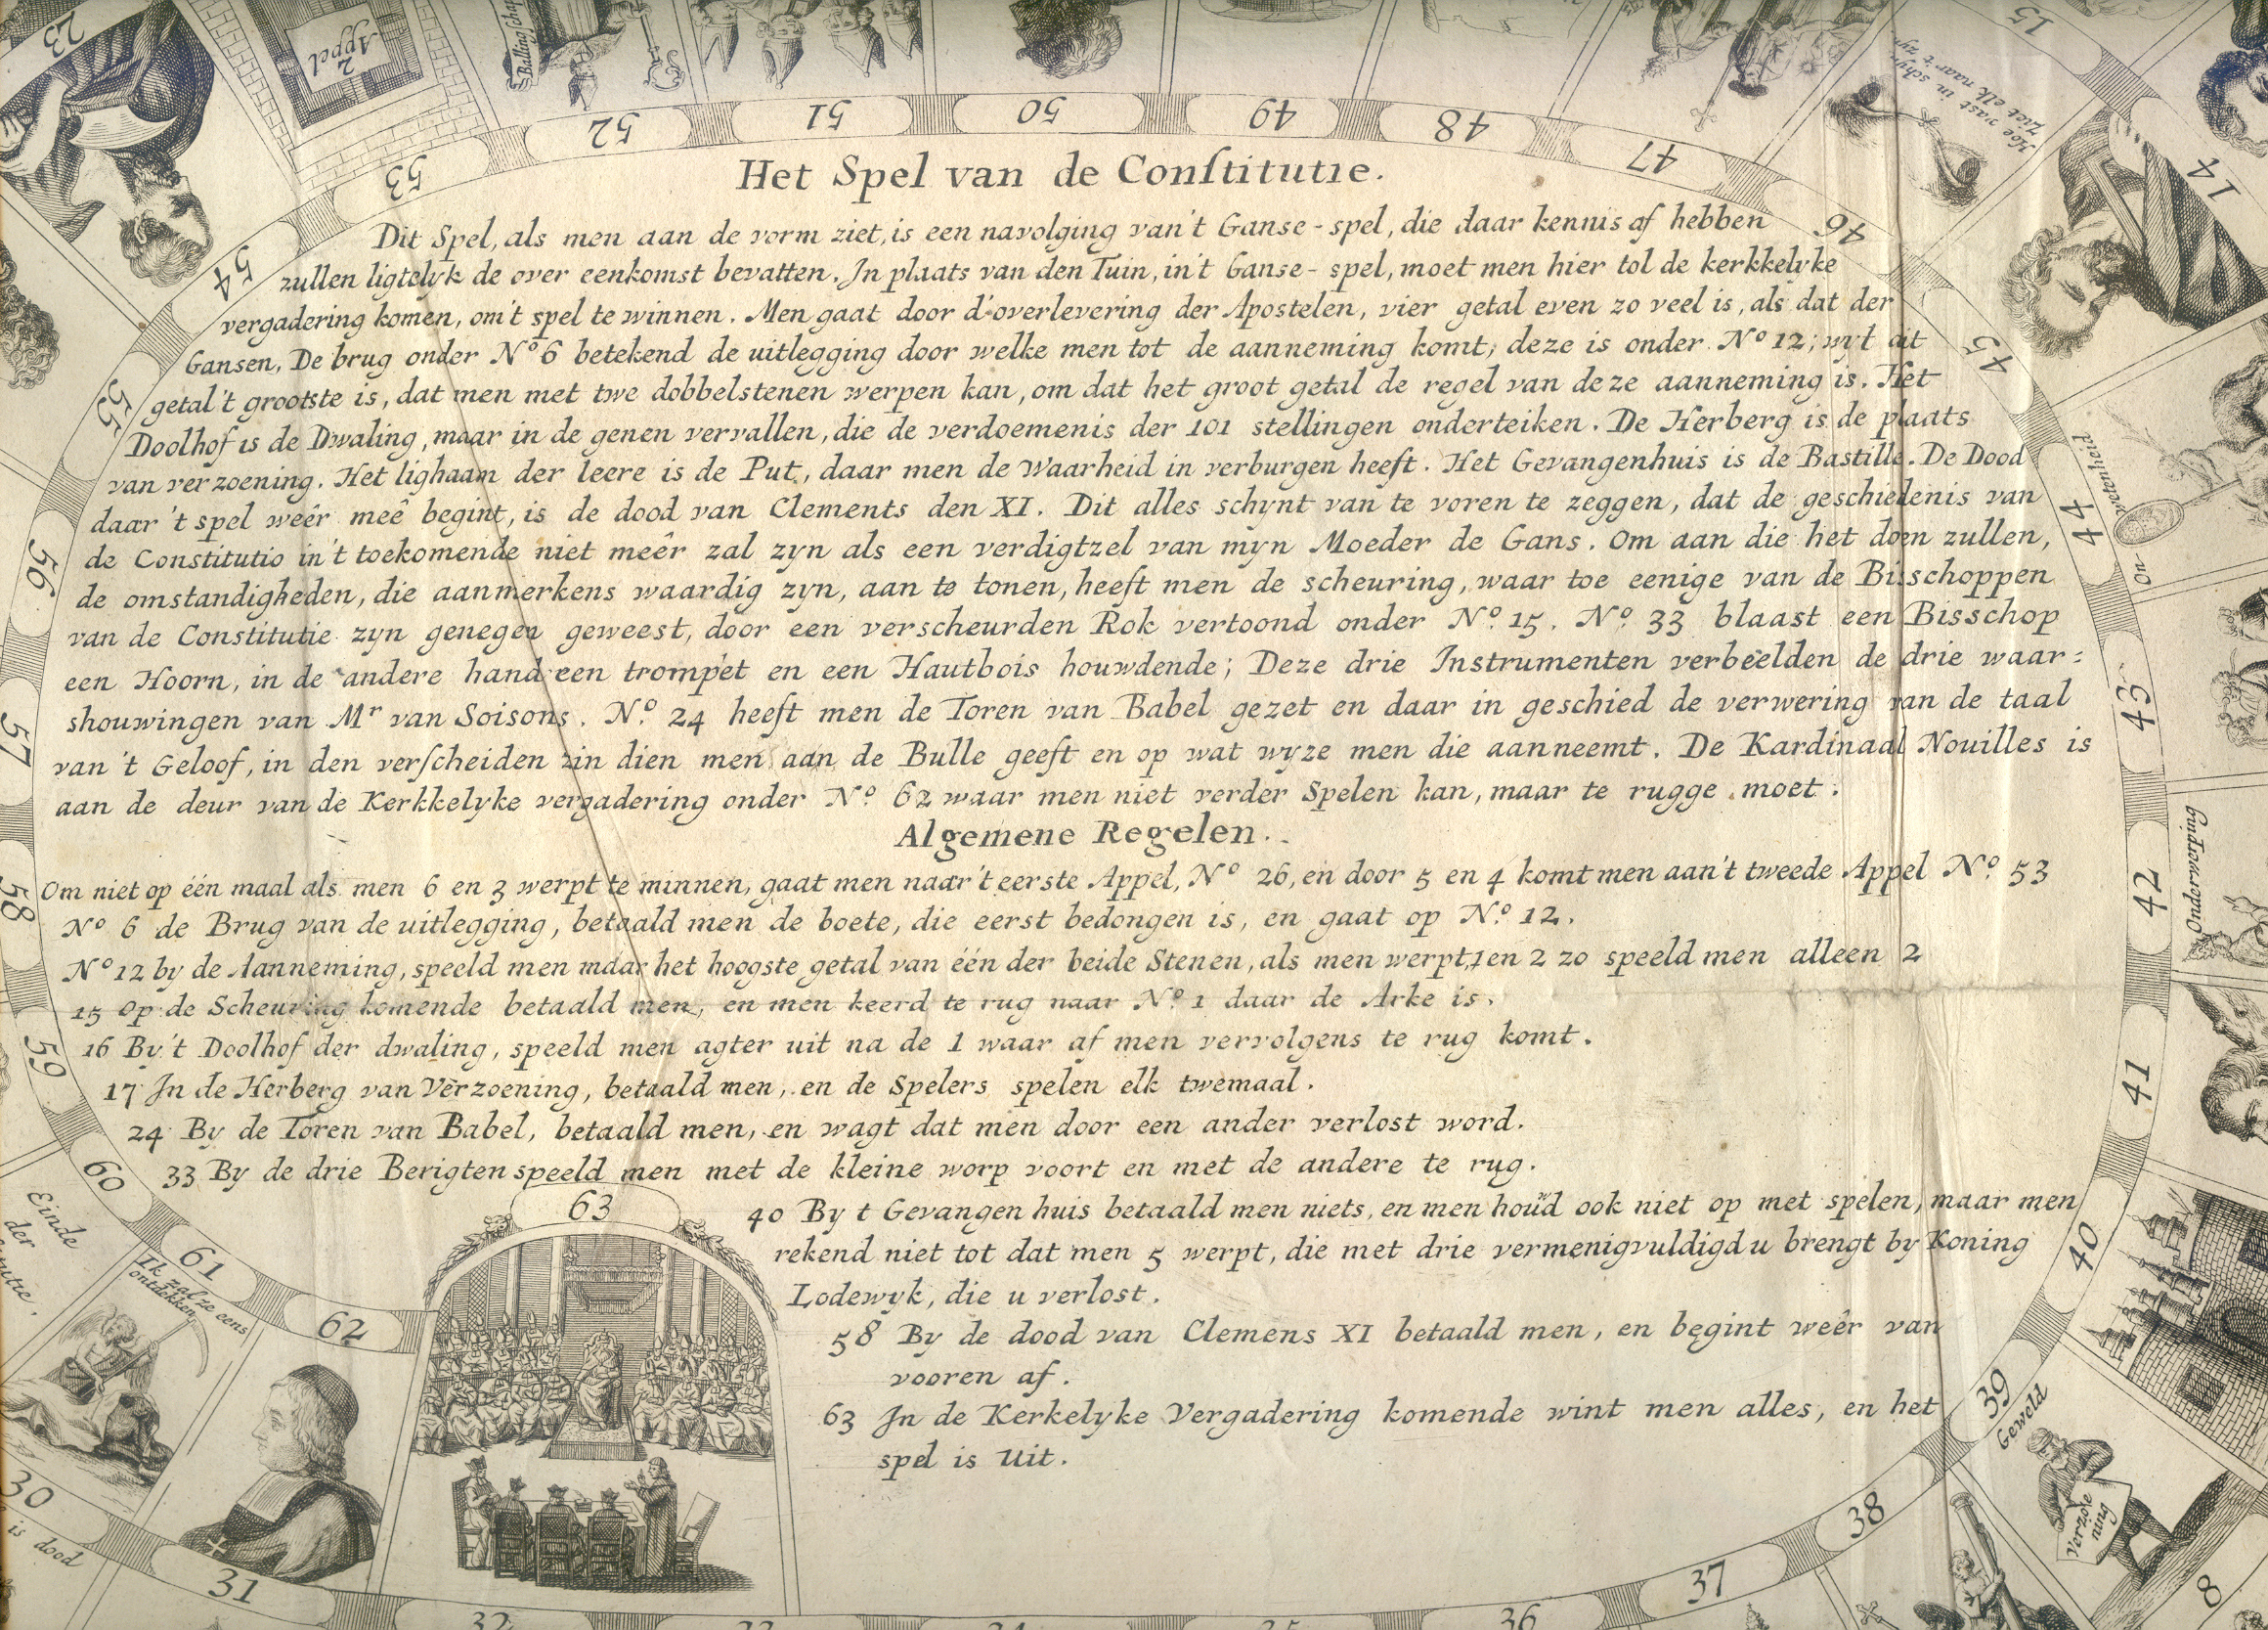 Het Spel van de Conſtitutie.
Dit Spel, als men aan de vorm ziet, is een navolging van't Ganse-spel, die daar kennis af hebben
zullen ligtelyk de over eenkomst bevatten. In plaats van den Tuin, in't Ganse-spel, moet men hier tol de kerkkelyke
vergadering komen, om't spel te winnen. Men gaat door d'overlevering der Apostelen, vier getal even zo veel is, als dat der
Gansen, De brug onder No 6 betekend de uitlegging door welke men tot de aanneming komt; deze is onder No 12; wyl dit
getal 't grootste is, dat men met twe dobbelstenen werpen kan, om dat het groot getal de regel van deze aanneming is. Het
Doolhof is de Dwaling, maar in de genen vervallen, die de verdoemenis der 101 stellingen onderteiken. De Herberg is de plaats
van verzoening. Het lighaam der leere is de Put, daar men de Waarheid in verburgen heeft. Het Gevangenhuis is de Bastille. De Dood
daar 't spel weêr meê begint, is de dood van Clements den XI. Dit alles schynt van te voren te zeggen, dat de geschiedenis van
de Constitutio in't toekomende niet meêr zal zyn als een verdigtzel van myn Moeder de Gans. Om aan die het doen zullen,
de omstandigheden, die aanmerkens waardig zyn, aan te tonen, heeft men de scheuring, waar toe eenige van de Bisschoppen
van de Constitutie zyn genegen geweest, door een verscheurden Rok vertoond onder No. 15. No. 33 blaast een Bisschop
een Hoorn, in de andere hand een trompet en een Hautbois houwdende; Deze drie Instrumenten verbeelden de drie waar=
shouwingen van Mr van Soisons. No. 24 heeft men de Toren van Babel gezet en daar in geschied de verwering van de taal
van 't Geloof, in den verſcheiden zin dien men aan de Bulle geeft en op wat wyze men die aanneemt. De Kardinaal Nouilles is
aan de deur van de Kerkkelyke vergadering onder No. 62 waar men niet verder Spelen kan, maar te rugge moet.
Algemene Regelen.
Om niet op één maal als men 6 en 3 werpt te minnen, gaat men naar't eerste Appel, No 26, en door 5 en 4 komt men aan't tweede Appel No. 53
No 6 de Brug van de uitlegging, betaald men de boete, die eerst bedongen is, en gaat op No. 12.
No 12 by de Aanneming, speeld men maar het hoogste getal van één der beide Stenen, als men werpt, 1 en 2 zo speeld men alleen 2
15 Op de Scheuring komende betaald men, en men keerd te rug naar No. 1 daar de Arke is.
16 By 't Doolhof der dwaling, speeld men agter uit na de 1 waar af men vervolgens te rug komt.
17 In de Herberg van Verzoening, betaald men, en de Spelers spelen elk twemaal.
24 By de Toren van Babel, betaald men, en wagt dat men door een ander verlost word.
33 By de drie Berigten speeld men met de kleine worp voort en met de andere te rug.
40 By t Gevangen huis betaald men niets, en men houd ook niet op met spelen, maar men
rekend niet tot dat men 5 werpt, die met drie vermenigvuldigd u brengt by Koning
Lodewyk, die u verlost.
58 By de dood van Clemens XI betaald men, en begint weêr van
vooren af.
63 In de Kerkelyke Vergadering komende wint men alles, en het
spel is uit.
8
14
15
23
30
31
32
36
37
38
39
40
41
42
43
44
45
46
47
48
49
50
51
52
53
54
55
56
57
58
59
60
61
62
63
2
Appel
Balling schap
Hoe vast in schyn
Ziet elk naar 't zyn
On-
wetenheid
Ondrowping
Geweld
Verzoe
ning
Einde
der
Ik zal ze eens
ontdekken
is dood